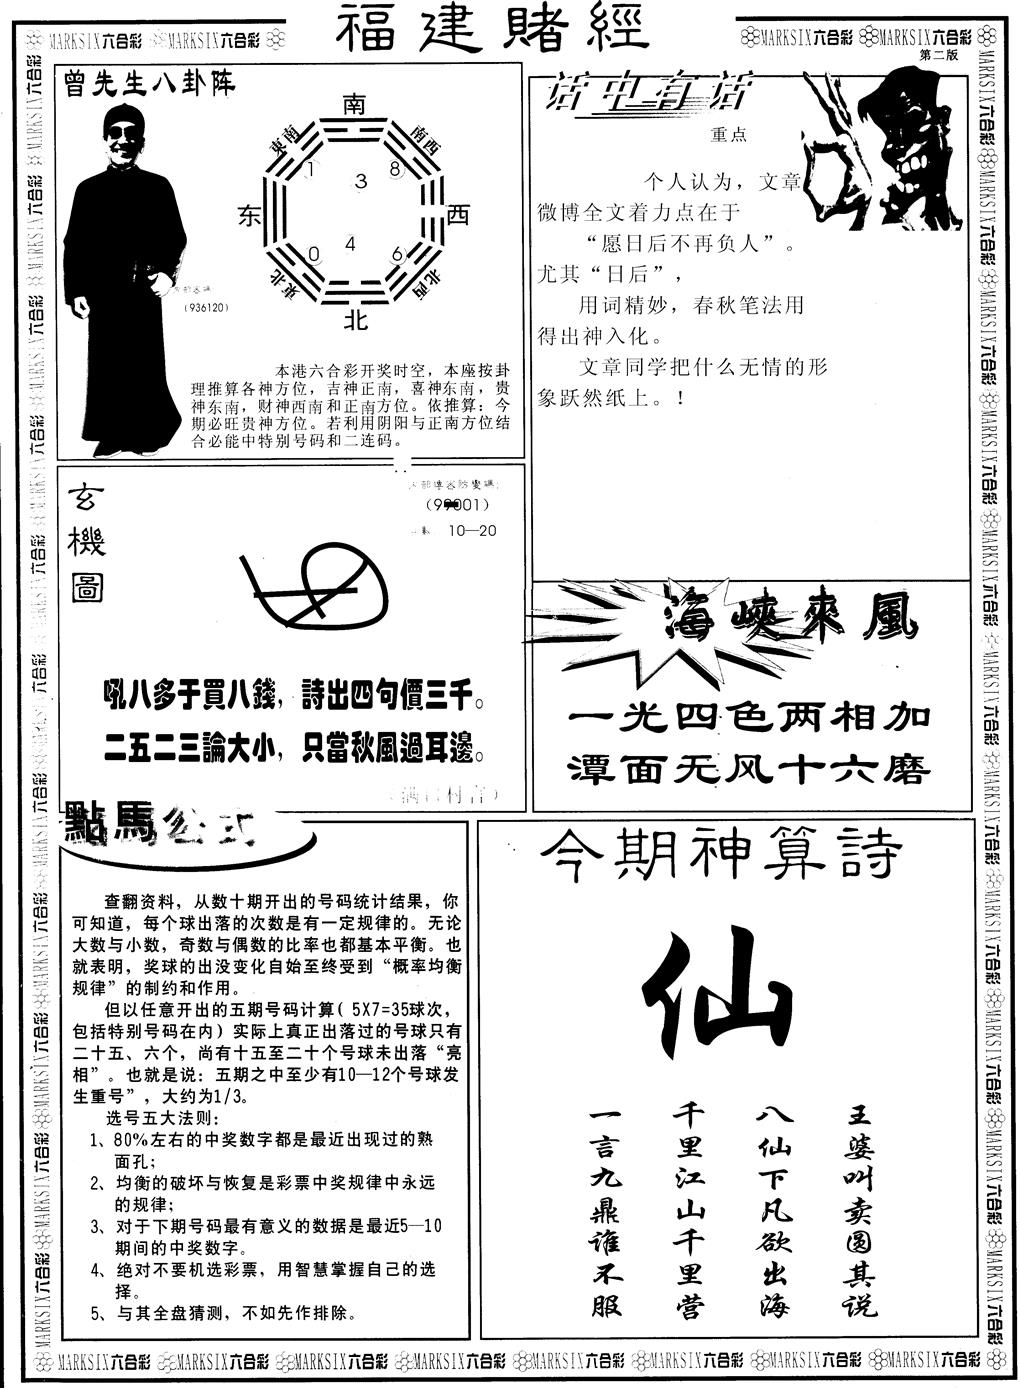 福建賭經
MARKSIX六合彩 MARKSIX六合彩
MARKSIX六合彩 MARKSIX六合彩
第二版
曾先生八卦阵
南
東南 南西
1 3 8
东 西
0 4 6
東北 北西
北
(936120)
本港六合彩开奖时空，本座按卦
理推算各神方位，吉神正南，喜神东南，贵
神东南，财神西南和正南方位。依推算：今
期必旺贵神方位。若利用阴阳与正南方位结
合必能中特别号码和二连码。
话中有话
重点
个人认为，文章
微博全文着力点在于
“愿日后不再负人”。
尤其“日后”，
用词精妙，春秋笔法用
得出神入化。
文章同学把什么无情的形
象跃然纸上。！
玄機圖
10—20
吼八多于買八錢，詩出四句價三千。
二五二三論大小，只當秋風過耳邊。
（满口村言）
海峽來風
一光四色两相加
潭面无风十六磨
點馬公式
查翻资料，从数十期开出的号码统计结果，你
可知道，每个球出落的次数是有一定规律的。无论
大数与小数，奇数与偶数的比率也都基本平衡。也
就表明，奖球的出没变化自始至终受到“概率均衡
规律”的制约和作用。
但以任意开出的五期号码计算( 5X7=35球次，
包括特别号码在内) 实际上真正出落过的号球只有
二十五、六个，尚有十五至二十个号球未出落“亮
相”。也就是说：五期之中至少有10—12个号球发
生重号”，大约为1/3。
选号五大法则：
1、80%左右的中奖数字都是最近出现过的熟
面孔；
2、均衡的破坏与恢复是彩票中奖规律中永远
的规律；
3、对于下期号码最有意义的数据是最近5—10
期间的中奖数字。
4、绝对不要机选彩票，用智慧掌握自己的选
择。
5、与其全盘猜测，不如先作排除。
今期神算詩
仙
王婆叫卖圆其说
八仙下凡欲出海
千里江山千里营
一言九鼎谁不服
MARKSIX六合彩 MARKSIX六合彩 MARKSIX六合彩 MARKSIX六合彩 MARKSIX六合彩 MARKSIX六合彩 MARKSIX六合彩 MARKSIX六合彩